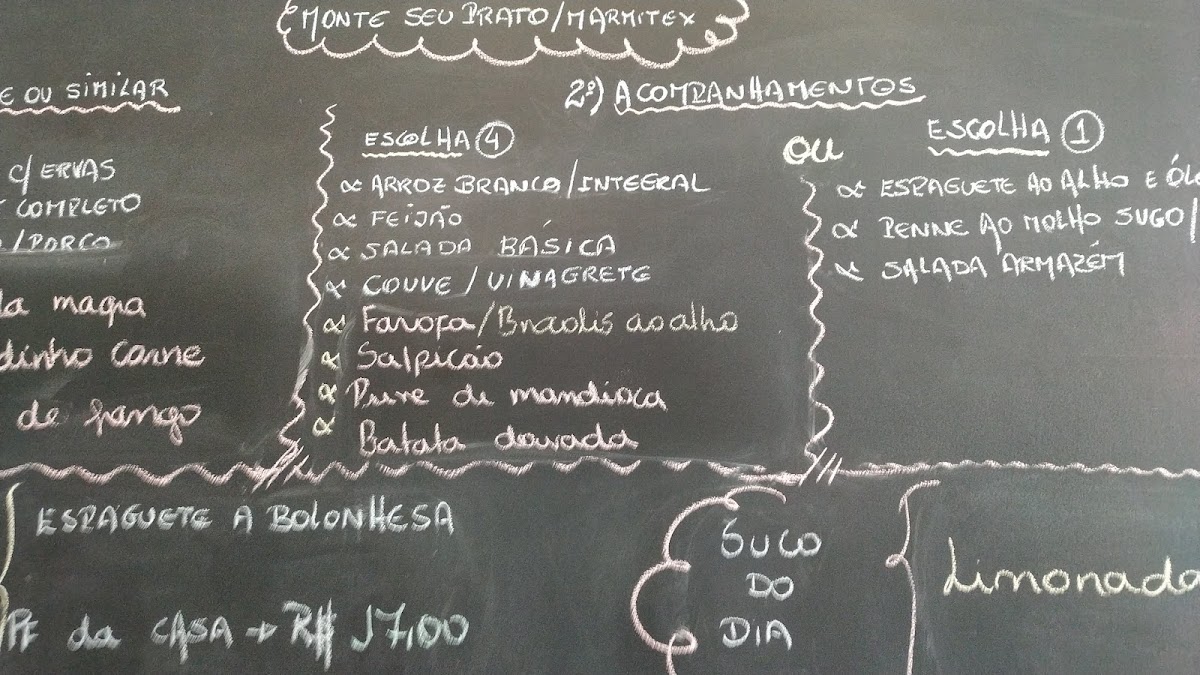 MONTE SEU PRATO/MARMITEX
E OU SIMILAR
C/ ERVAS
COMPLETO
/PORCO
magra
dinho Carne
de frango
2º) ACOMPANHAMENTOS
ESCOLHA 4
ARROZ BRANCO/INTEGRAL
FEIJÃO
SALADA BÁSICA
COUVE/VINAGRETE
Farofa/Braolis ao alho
Salpicão
Pure de mandioca
Batata dourada
OU
ESCOLHA 1
ESPAGUETE AO ALHO E ÓLE
PENNE AO MOLHO SUGO/
SALADA ARMAZÉM
ESPAGUETE A BOLONHESA
PF da CASA → R$ 17,00
SUCO
DO
DIA
Limonada